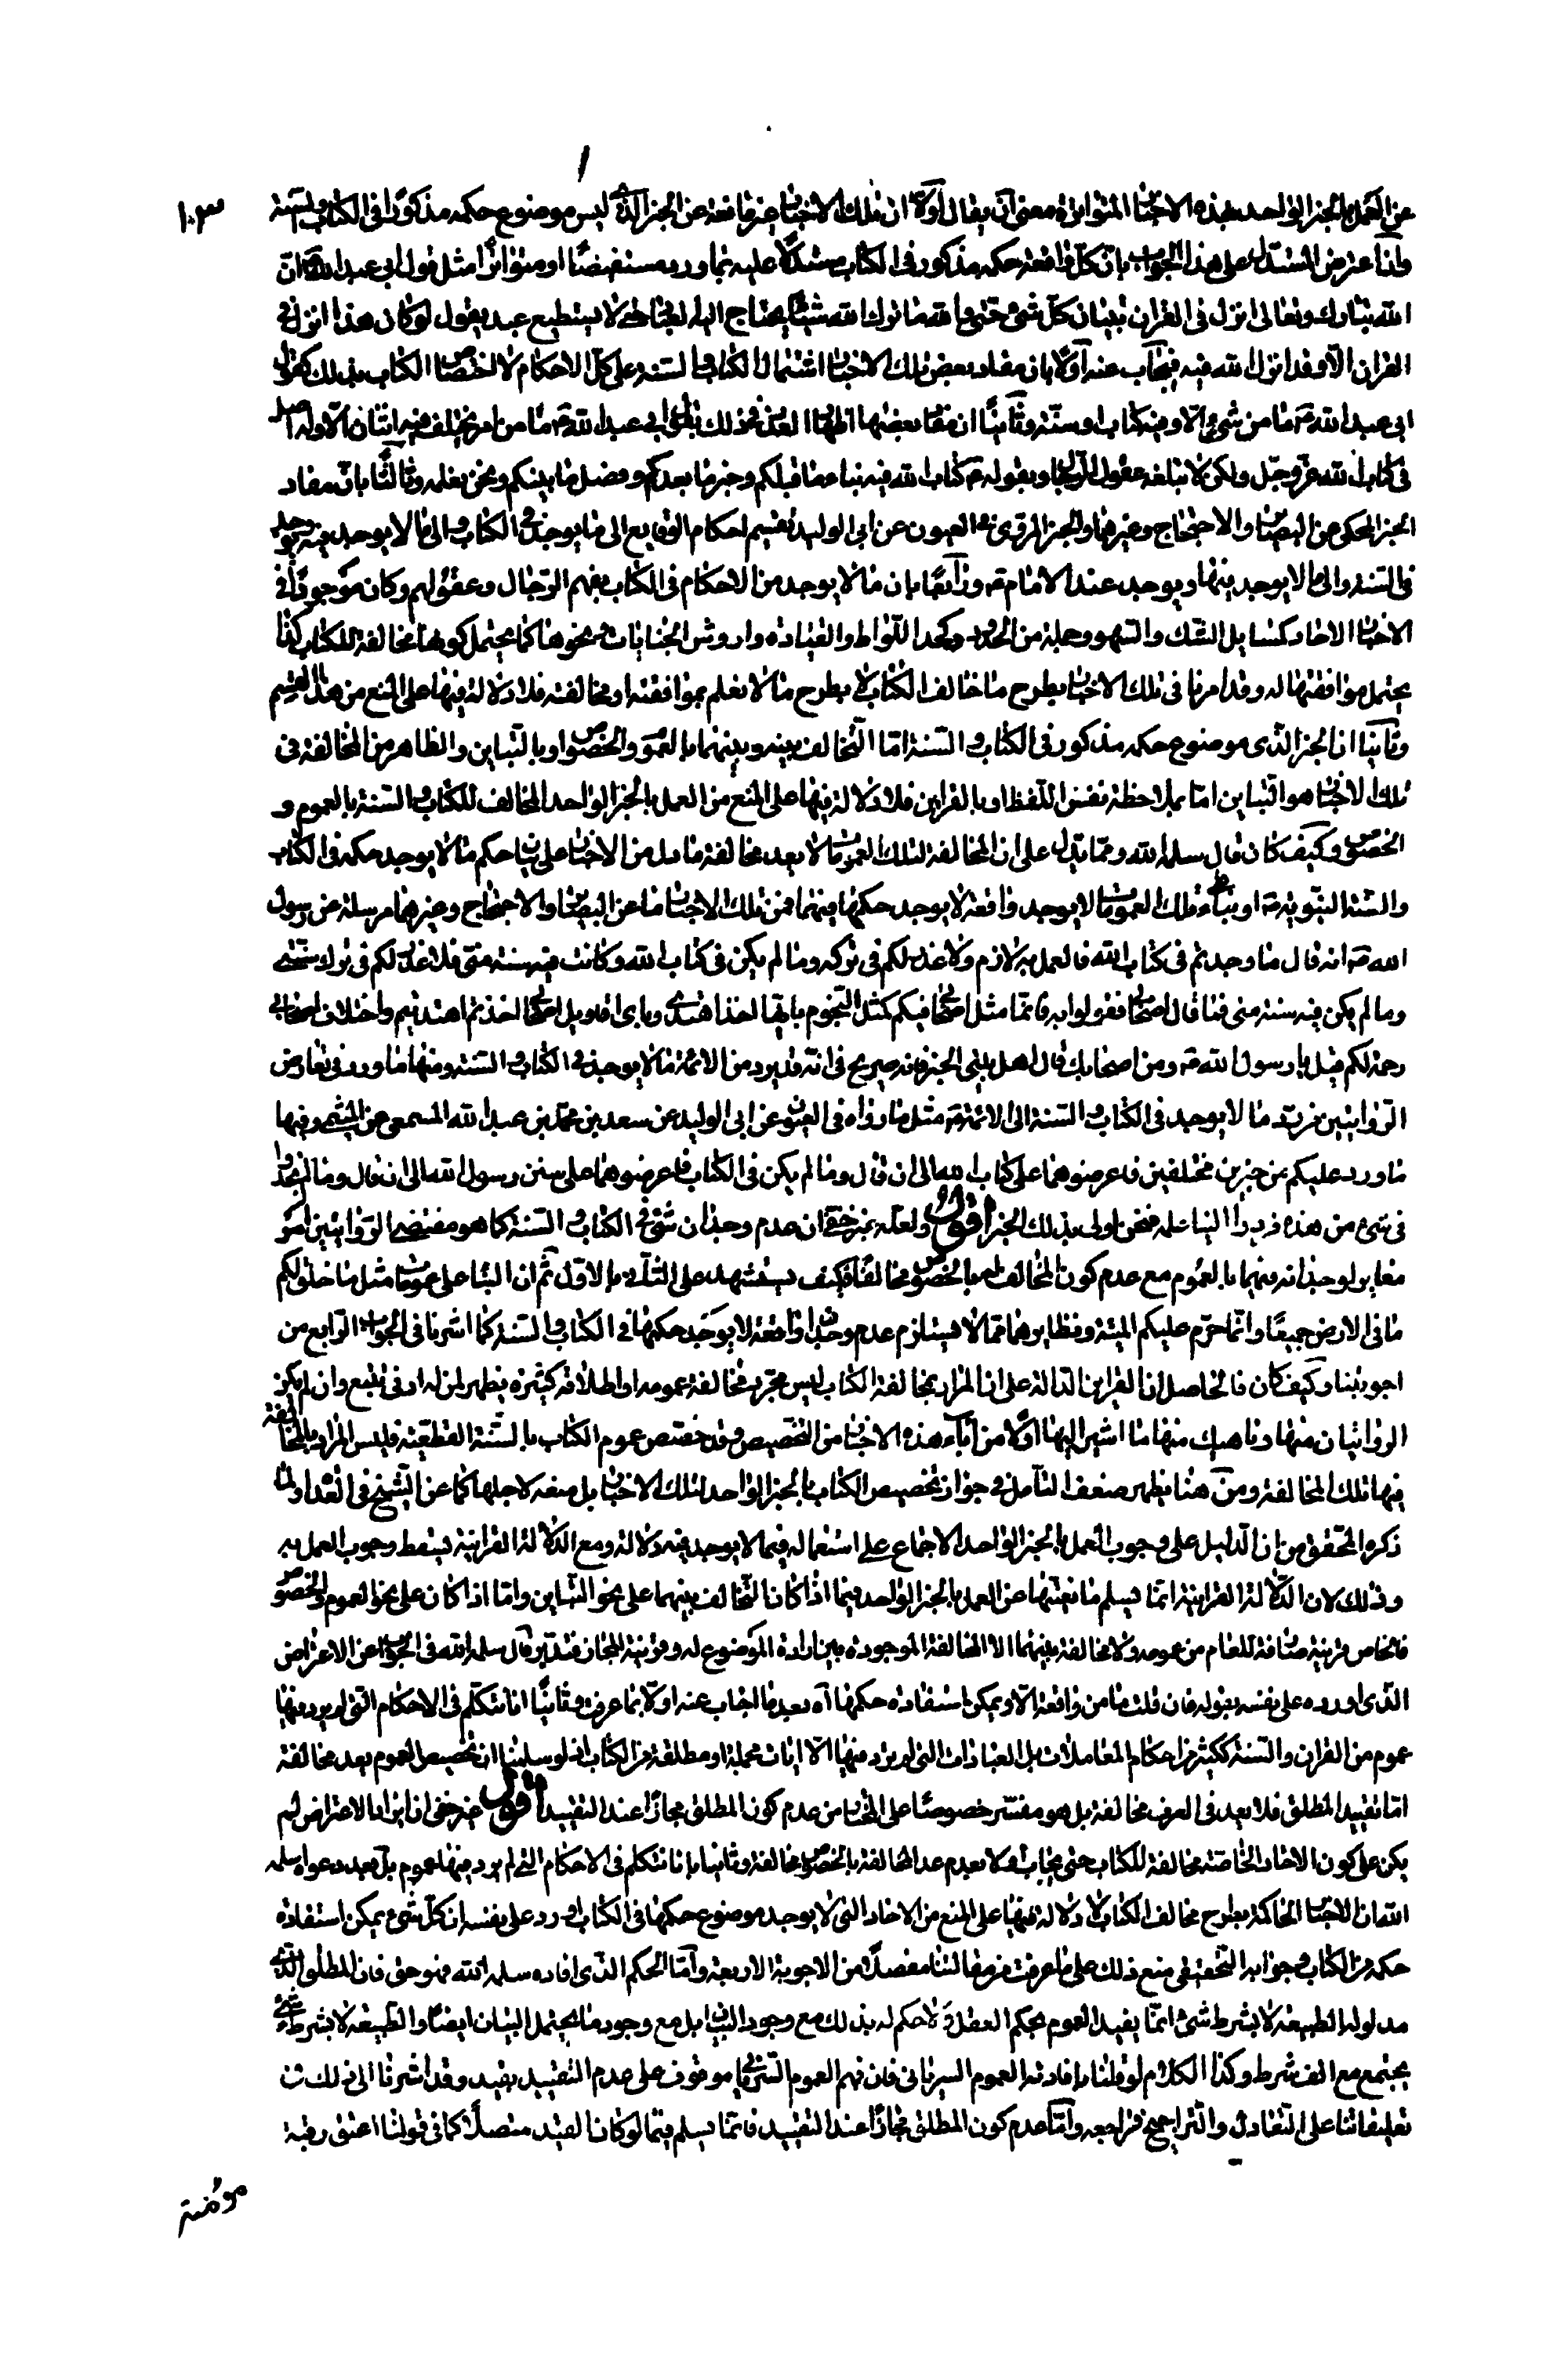 ١٠٣
عن العمل بالخبر الواحد بهذه الاخبار المتواترة معنى ان يقال اولا ان تلك الاخبار غير مانعة عن الخبر الذى ليس موضوع حكمه مذكورا فى الكتاب والسنة
واذا اعترض المستدل على هذا الجواب بان كل واقعة حكمه مذكور فى الكتاب مستدلا عليه بما ورد مستفيضا او متواترا مثل قول ابى عبد الله ع ان
الله تبارك وتعالى انزل فى القران تبيان كل شئ حتى والله ما ترك الله شيئا يحتاج اليه العباد حتى لا يستطيع عبد يقول لو كان هذا انزل فى
القران الا وقد انزل الله فيه فيجاب عنه اولا بان مفاد بعض تلك الاخبار اشتمال الكتاب والسنة على كل الاحكام لا اختصاص الكتاب بذلك كقول
ابى عبد الله ع ما من شئ الا وفيه كتاب او سنة وثانيا ان بعضها ابى عبد الله ع ما من امر يختلف فيه اثنان الا وله اصل
فى كتاب الله عز وجل ولكن لا تبلغه عقول الرجال وبقوله ع كتاب الله فيه نباء ما قبلكم وخبر ما بعدكم وفصل ما بينكم ونحن نعلمه وثالثا بان مفاد
الخبر المحكى عن البصائر والاحتجاج وغيرهما والخبر المروى فى العيون عن ابى الوليد تقسيم احكام الوقايع الى ما يوجد فى الكتاب والى ما لا يوجد فيه ويوجد
فى السنة والى ما لا يوجد فيهما ويوجد عند الامام ع ورابعا بان ما لا يوجد من الاحكام فى الكتاب بفهم الرجال وعقولهم وكان موجودا فى
الاخبار الاحاد كمسايل الشك والسهو وجملة من الحدود كحد اللواط والقيادة واروش الجنايات ونحوها كما يحتمل كونها مخالفة للكتاب كذا
يحتمل موافقتها له وقد امرنا فى تلك الاخبار بطرح ما خالف الكتاب لا بطرح ما لا نعلم بموافقته او مخالفته فلا دلالة فيها على المنع من هذا القسم
وثانيا ان الخبر الذى موضوع حكمه مذكور فى الكتاب والسنة اما التخالف بينه وبينهما بالعموم والخصوص او بالتباين والظاهر من المخالفة فى
تلك الاخبار هو التباين اما بملاحظة نفس اللفظ او بالقراين فلا دلالة فيها على المنع من العمل بالخبر الواحد المخالف للكتاب والسنة بالعموم و
الخصوص وكيف كان قال سلمه الله ومما يدل على ان المخالفة لتلك العمومات لا يعد مخالفة ما دل من الاخبار على بيان حكم ما لا يوجد حكمه فى الكتاب
والسنة النبوية ص اذ بناء على تلك العمومات لا يوجد واقعة لا يوجد حكمها فيهما فمن تلك الاخبار ما عن البصائر والاحتجاج وغيرهما مرسلة عن رسول
الله ص انه قال ما وجدتم فى كتاب الله فالعمل به لازم ولا عذر لكم فى تركه وما لم يكن فى كتاب الله وكانت فيه سنة منى فلا عذر لكم فى ترك سنتى
وما لم يكن فيه سنة منى فما قال اصحابى فقولوا به فانما مثل اصحابى فيكم كمثل النجوم بايها اخذ اهتدى وباى اقاويل اصحابى اخذتم اهتديتم واختلاف اصحابى
رحمة لكم قيل يا رسول الله ص ومن اصحابك قال اهل بيتى الخبر فانه صريح فى انه قد يرد من الائمة ما لا يوجد فى الكتاب والسنة ومنها ما ورد فى تعارض
الروايتين من رد ما لا يوجد فى الكتاب والسنة الى الائمة ع مثل ما رواه فى العيون عن ابى الوليد عن سعد بن محمد بن عبد الله المسمعى عن الميثمى وفيها
ما ورد عليكم من خبرين مختلفين فاعرضوهما على كتاب الله الى ان قال وما لم يكن فى الكتاب فاعرضوهما على سنن رسول الله الى ان قال وما لم تجدوا
فى شئ من هذه فردوا الينا علمه فنحن اولى بذلك الخبر اقول ولعله غير خفى ان عدم وجدان شئ فى الكتاب والسنة كما هو مقتضى الروايتين امر
مغاير لوجدانه فيهما بالعموم مع عدم كون المخالف لهما بالخصوص مخالفا فكيف يستشهد على الثانى بالاول ثم ان البناء على عمومات مثل ما خلق لكم
ما فى الارض جميعا وانما حرم عليكم الميتة ونظايرهما مما لا يستلزم عدم وجدان واقعة لا يوجد حكمها فى الكتاب والسنة كما اشرنا فى الجواب الرابع من
اجوبتنا وكيف كان فالحاصل ان القراين الدالة على ان المراد بمخالفة الكتاب ليس مجرد مخالفة عمومه او اطلاقه كثيرة يظهر لمن له ادنى تتبع وان لم يكن
الروايتان منها وناهيك منها ما اشير اليها اولا من اباء هذه الاخبار من التخصيص وقد خصص عموم الكتاب بالسنة القطعية فليس المراد بالمخالفة
فيها تلك المخالفة ومن هنا يظهر ضعف التامل فى جواز تخصيص الكتاب بالخبر الواحد لتلك الاخبار بل منعه لاجلها كما عن الشيخ فى العدة او لما
ذكره المحقق من ان الدليل على وجوب العمل بالخبر الواحد الاجماع على استعماله فيما لا يوجد فيه دلالة ومع الدلالة القرانية يسقط وجوب العمل به
وذلك لان الدلالة القرانية انما يسلم مانعيتها عن العمل بالخبر الواحد فيما اذا كان التخالف بينهما على نحو التباين واما اذا كان على نحو العموم والخصوص
فالخاص قرينة صارفة للعام من عمومه ولا مخالفة بينهما الا المخالفة الموجودة بين ارادة الموضوع له وقرينة المجاز فتدبر قال سلمه الله فى الجواب عن الاعتراض
الذى اورده على نفسه بقوله فان قلت ما من واقعة الا ويمكن استفادة حكمها اه بعد ما اجاب عنه اولا بما عرفت وثانيا انا نتكلم فى الاحكام التى لم يرد فيها
عموم من القران والسنة ككثير من احكام المعاملات بل العبادات التى لم يرد فيها الا ايات مجملة او مطلقة من الكتاب اذ لو سلمنا ان تخصيص العموم يعد مخالفة
اما تقييد المطلق فلا يعد فى العرف مخالفة بل هو مفسر خصوصا على المختار من عدم كون المطلق مجازا عند التقييد اقول غير خفى ان ايراد الاعتراض لم
يكن على كون الاخبار الخاصة مخالفة للكتاب حتى يجاب اولا بعدم عد المخالفة بالخصوص مخالفة وثانيا بانا نتكلم فى الاحكام التى لم يرد فيها عموم بل بعد دعواه سلمه
الله ان الاخبار الحاكمة بطرح مخالف الكتاب لا دلالة فيها على المنع من الاخبار التى لا يوجد موضوع حكمها فى الكتاب اورد على نفسه ان كل شئ يمكن استفادة
حكمه من الكتاب وجوابه التحقيقى منع ذلك على ما عرفت من مقالتنا مفصلا من الاجوبة الاربعة واما الحكم الذى افاده سلمه الله فهو حق فان المطلق الذى
مدلوله الطبيعة لا بشرط شئ انما يفيد العموم بحكم العقل ولا حكم له بذلك مع وجود البيان بل مع وجود ما يحتمل البيان ايضا والطبيعة لا بشرط شئ
يجتمع مع الف شرط وكذا الكلام لو قلنا بافادته العموم السريانى فان فهم العموم السريانى موقوف على عدم التقييد بقيد وقد اشرنا الى ذلك فى
تعليقاتنا على التعادل والتراجيح فراجعه واما عدم كون المطلق مجازا عند التقييد فانما يسلم فيما لو كان القيد متصلا كما فى قولنا اعتق رقبة
مؤمنة